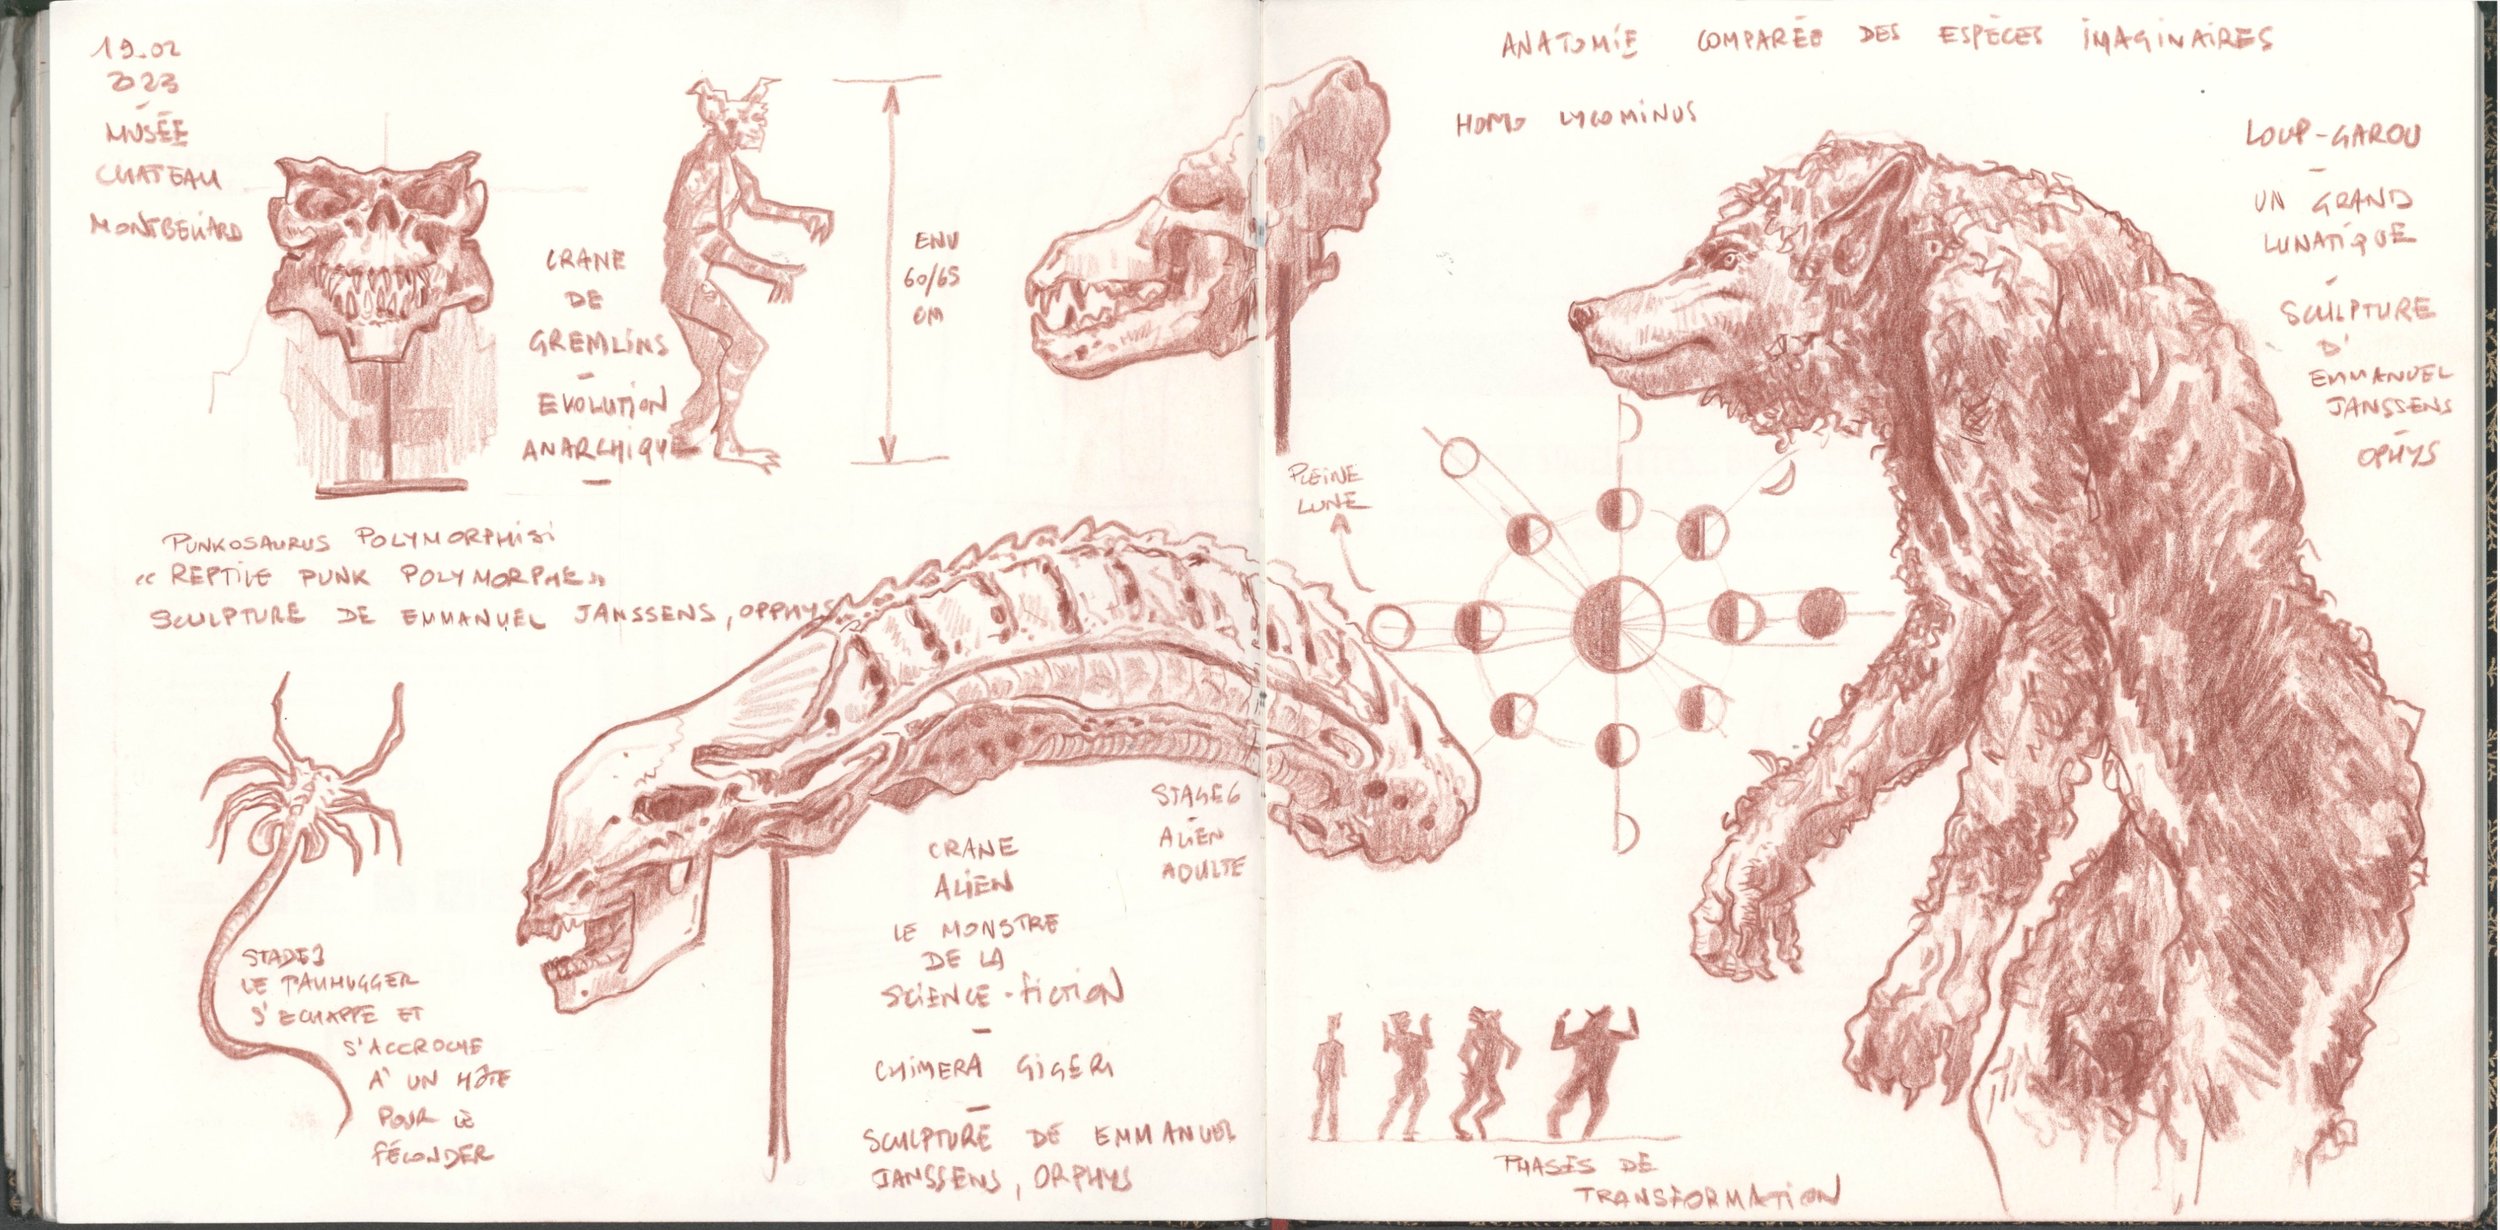 19.02
2023
MUSÉE
CHATEAU
MONTBELIARD
CRANE
DE
GREMLINS
-
EVOLUTION
ANARCHIQUE
-
ENV
60/65
CM
PUNKOSAURUS POLYMORPHISI
"REPTILE PUNK POLYMORPHE"
SCULPTURE DE EMMANUEL JANSSENS, OPPHYS
STADE 3
LE
S'ECHAPPE ET
S'ACCROCHE
A' UN HÔTE
POUR LE
FÉCONDER
CRANE
ALIEN
LE MONSTRE
DE LA
SCIENCE-FICTION
-
CHIMERA GIGERI
-
SCULPTURE DE EMMANUEL
JANSSENS, ORPHYS
STAGE 6
-
ALIEN
ADULTE
ANATOMIE COMPARÉE DES ESPÈCES IMAGINAIRES
HOMO LYCOMINUS
LOUP-GAROU
-
UN GRAND
LUNATIQUE
-
SCULPTURE
D'
EMMANUEL
JANSSENS
-
OPHYS
PLEINE
LUNE
PHASES DE
TRANSFORMATION